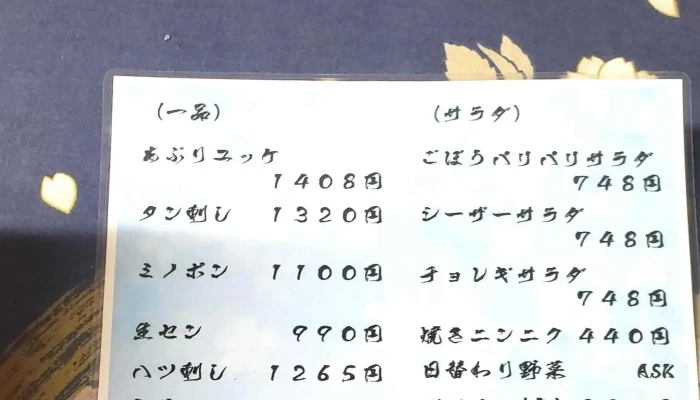 (一品)
あぶりユッケ
1408円
タン刺し 1320円
ミノポン 1100円
生セン 990円
ハツ刺し 1265円
(サラダ)
ごぼうパリパリサラダ
748円
シーザーサラダ
748円
チョレギサラダ
748円
焼きニンニク 440円
日替わり野菜 ASK